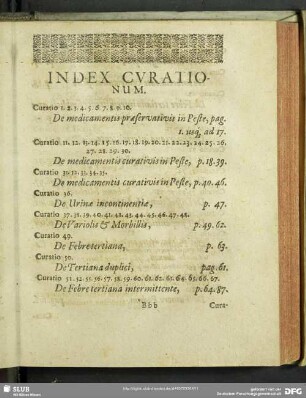 INDEX CVRATIO-
NUM.
Curatio 1. 2. 3. 4. 5. 6. 7. 8. 9. 10.
De medicamentis præservativis in Peste, pag.
1. usq; ad 17.
Curatio 11. 12. 13. 14. 15. 16. 17. 18. 19. 20. 21. 22. 23. 24. 25. 26.
27. 28. 29. 30.
De medicamentis curativis in Peste, p. 18. 39.
Curatio 31. 32. 33. 34. 35.
De medicamentis curativis in Peste, p. 40. 46.
Curatio 36.
De Urinæ incontinentia, p. 47.
Curatio 37. 38. 39. 40. 41. 42. 43. 44. 45. 46. 47. 48.
De Variolis & Morbillis, p. 49. 62.
Curatio 49.
De Febre tertiana, p. 63.
Curatio 50.
De Tertiana duplici, pag. 61.
Curatio 51. 52. 53. 56. 57. 58. 59. 60. 61. 62. 63. 64. 65. 66. 67.
De Febre tertiana intermittente, p. 64. 87.
Bbb Cura-
SLUB
Wir führen Wissen.
gefördert von der
Deutschen Forschungsgemeinschaft
DFG